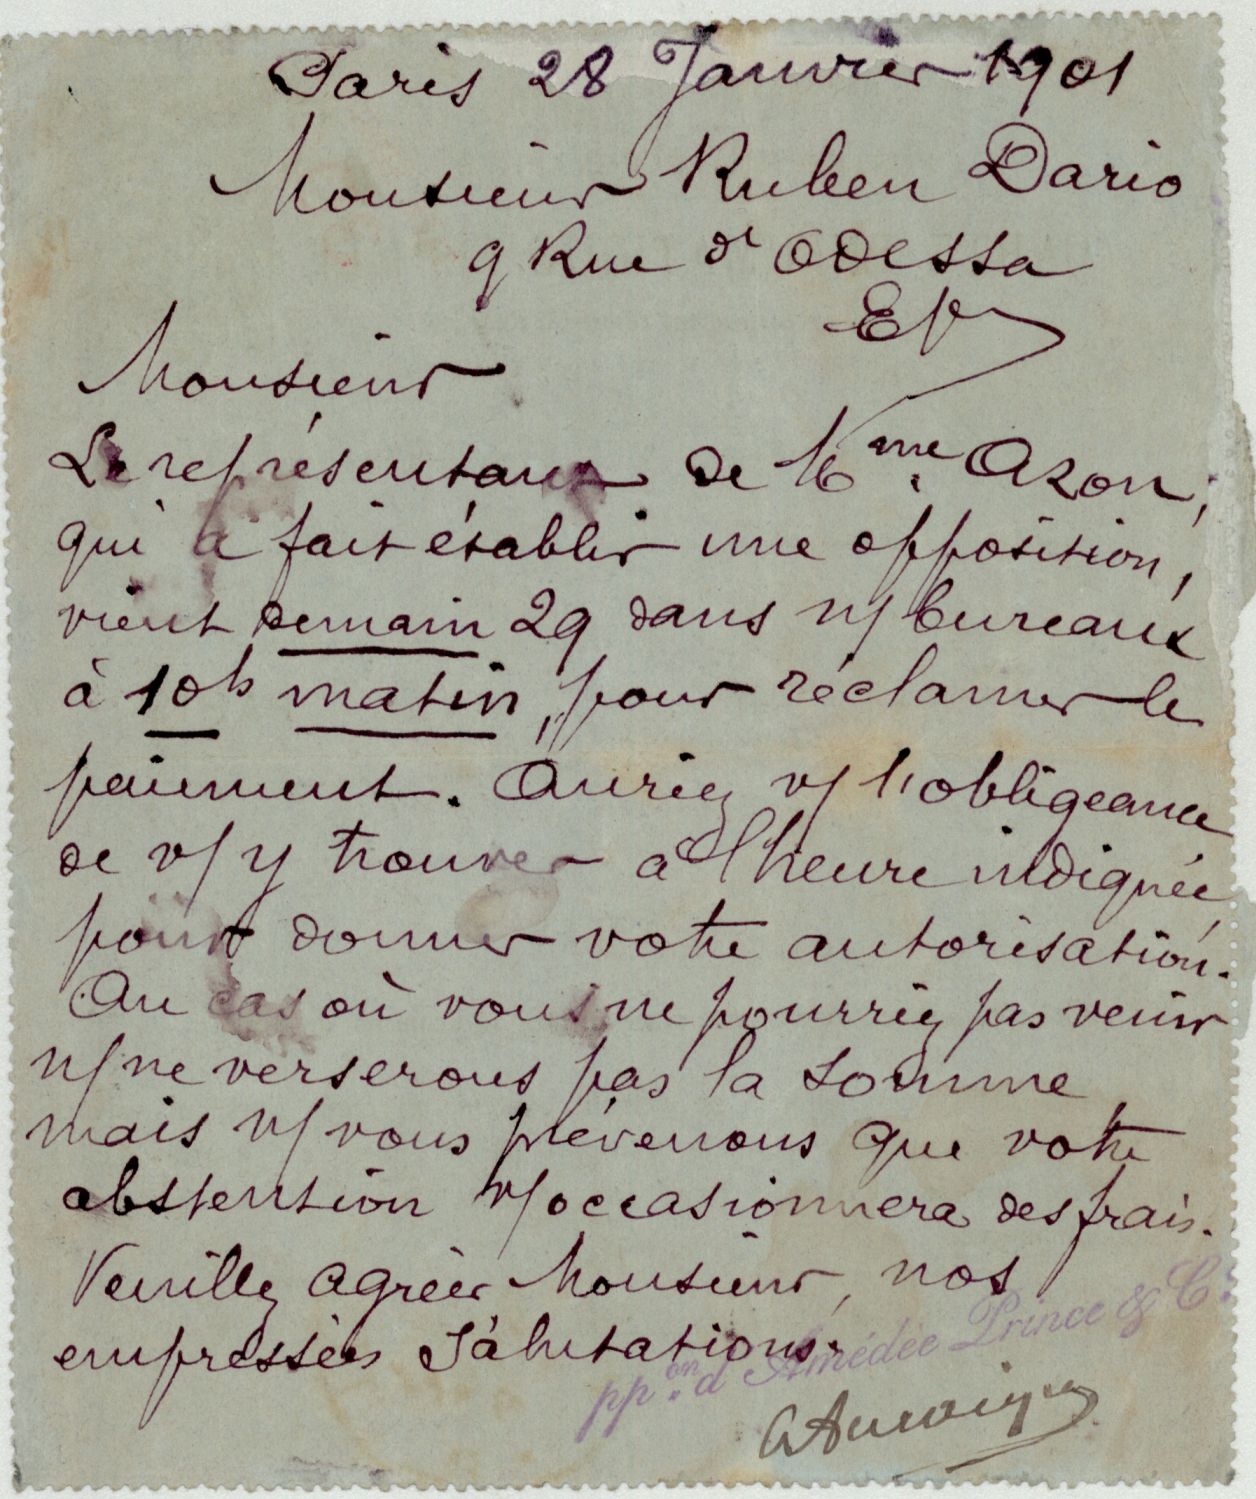 Paris 28 Janvier 1901
Monsieur Ruben Dario
9 Rue d' Odessa
EV
Monsieur
Le représentant de Mme. Azon,
qui a fait établir une opposition,
vient demain 29 dans n/ bureaux
à 10h matin, pour réclamer le
paiement. Auriez v/ l'obligeance
de v/ y trouver à l'heure indiquée
pour donner votre autorisation.
Au cas où vous ne pourriez pas venir
n/ ne verserons pas la somme
mais n/ vous prévenons que votre
abstention v/ occasionnera des frais.
Veuillez agréer Monsieur, nos
empressées Salutations.
ppon. d'Amédée Prince & Cie